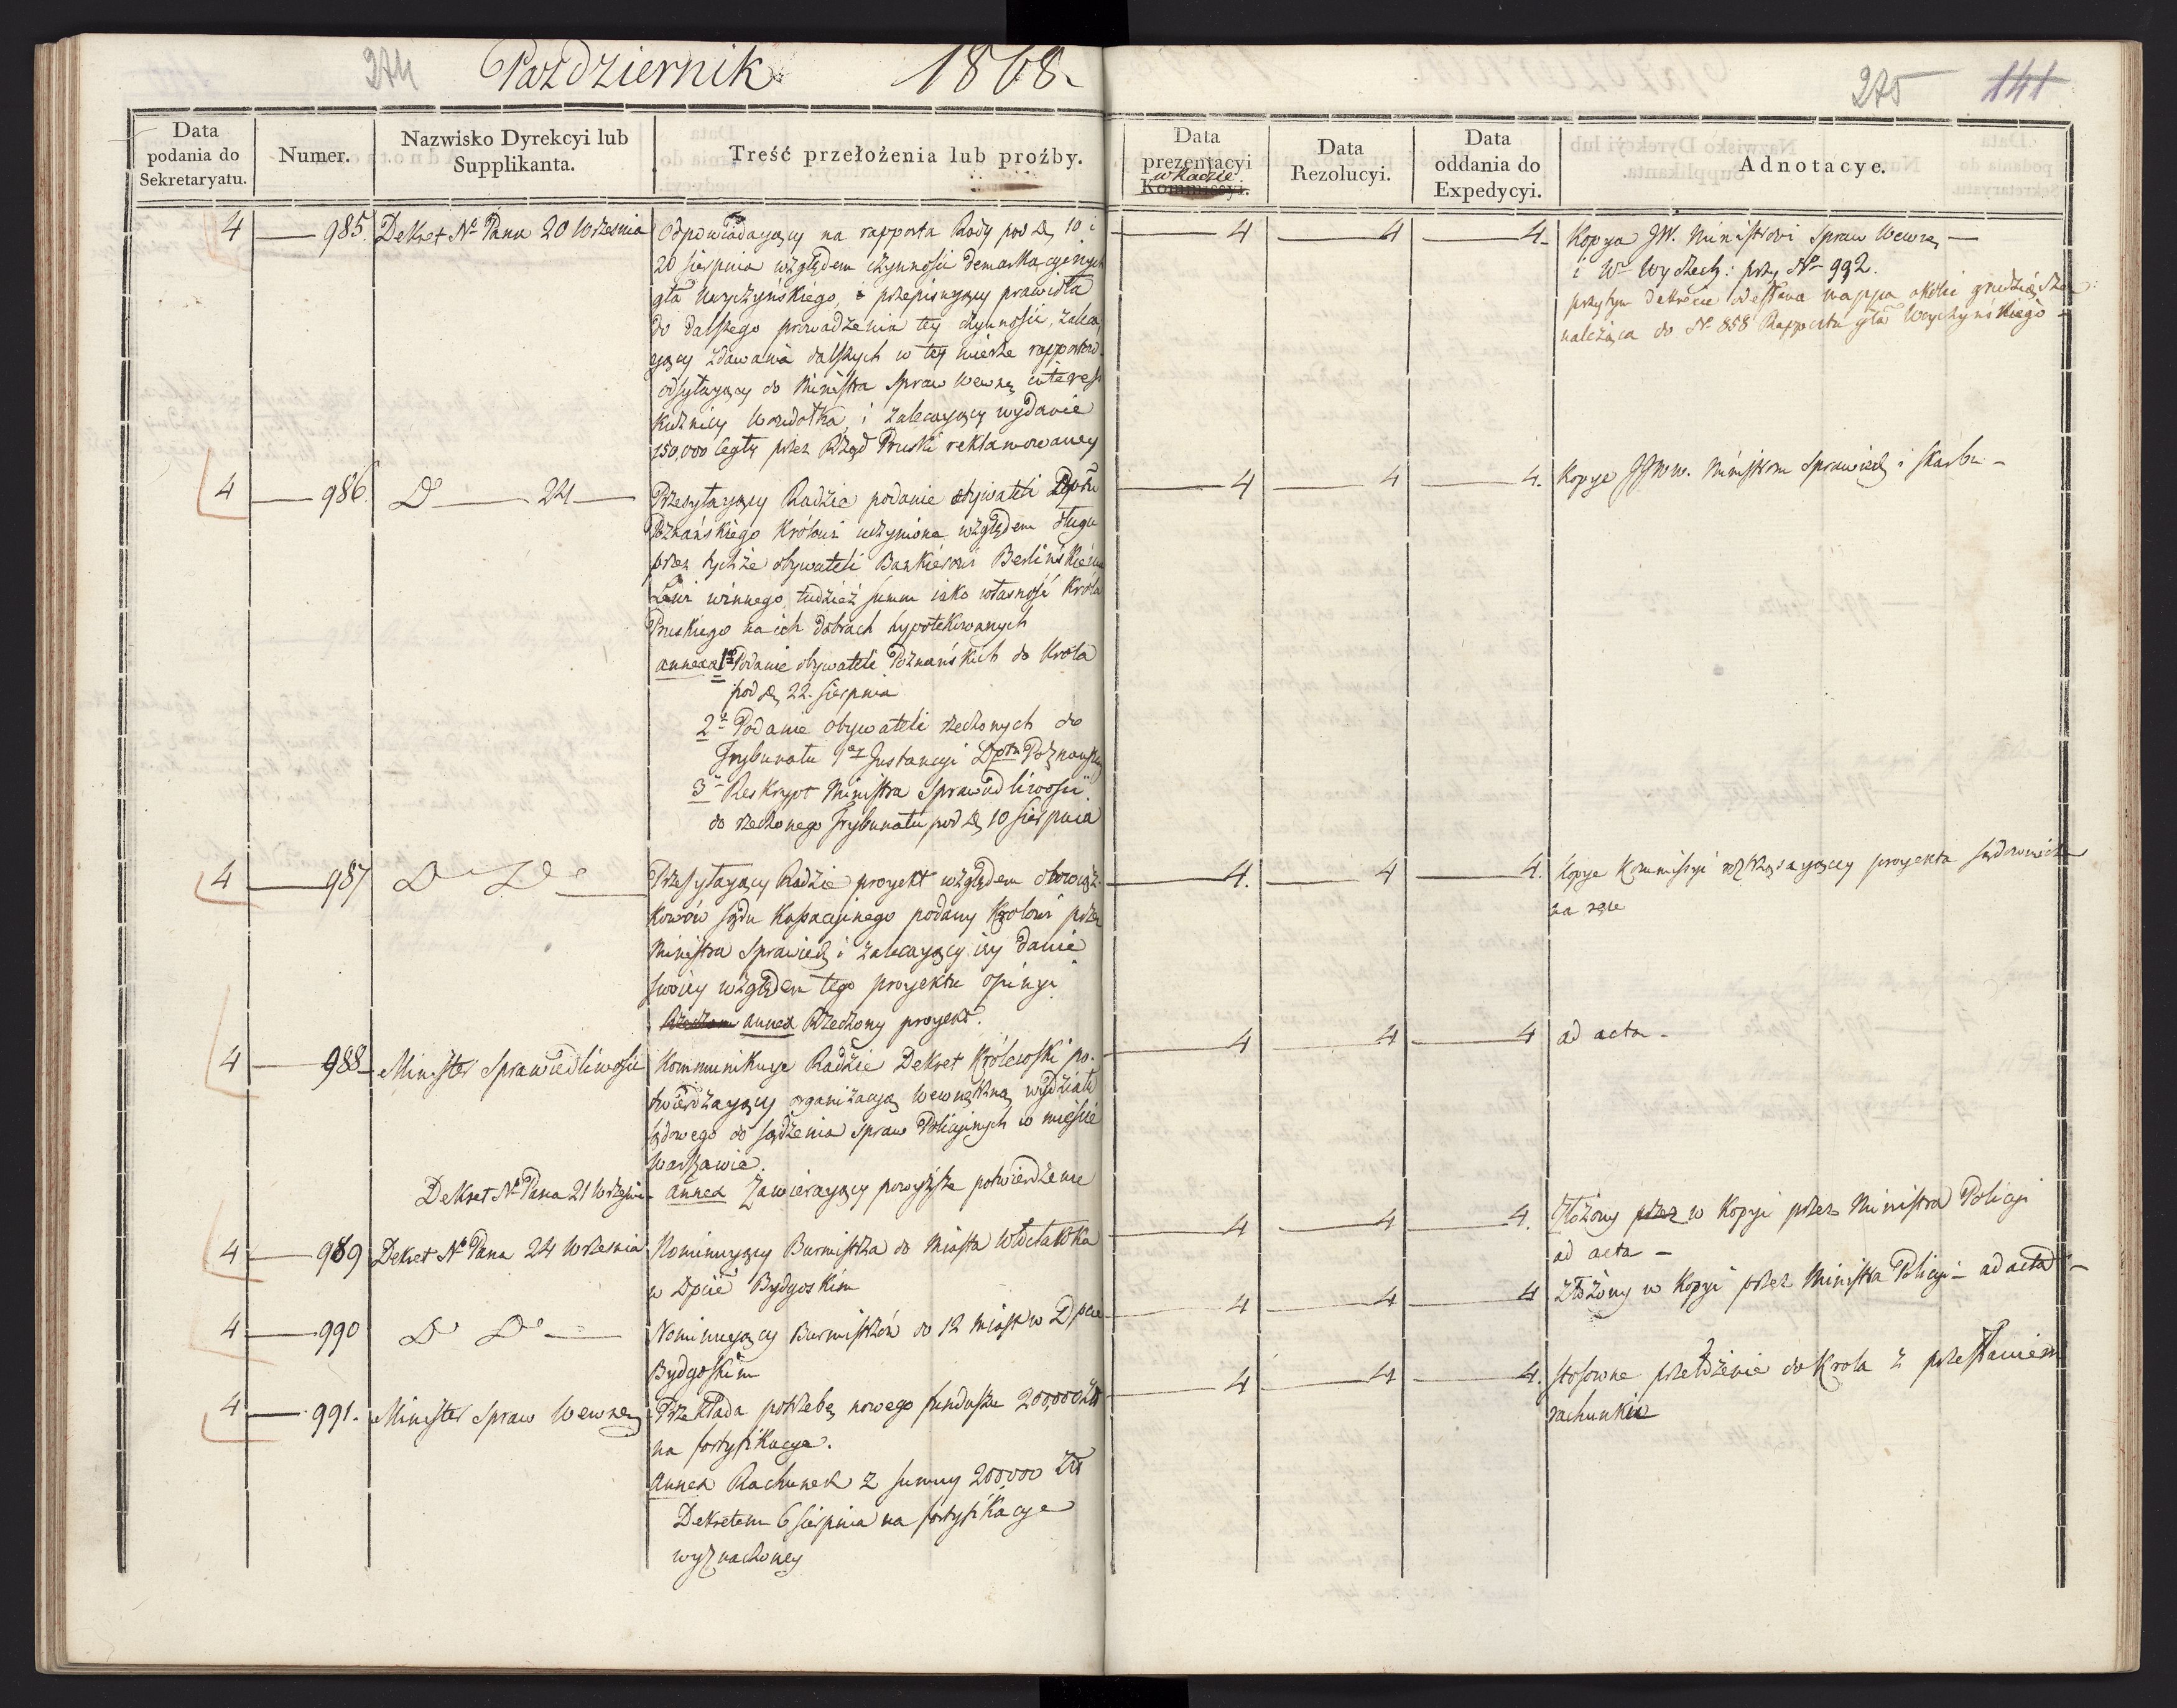 274 Październik 1808.
275 141
Data podania do Sekretaryatu.
Numer.
Nazwisko Dyrekcyi lub Supplikanta.
Treść przełożenia lub proźby.
Data prezentacyi w Radzie Kommissyi.
Data Rezolucyi.
Data oddania do Expedycyi.
Adnotacye.
4 — 985. Dekret No Pana 20 Września
Odpowiadaiący na rapporta Rady pod d. 10 i
20 sierpnia względem czynności demarkacyinych
do dalszego prowadzenia tey czynności, zaleca
iący zdawania dalszych w tey mierze rapportów
odsyłaiący do Ministra Spraw Wewnę. interess
Kuźnicy i zalecaiący wydanie
150,000 Cegły przez Rząd Pruski reklamowaney
4 4 4.
Kopya JW. Ministrowi Spraw Wewnę. —
przy No 992.
przytym dekrecie odesłana mappa okolic
należąca do No 858 Rapportu
4 — 986. Do — 24 —
Przesyłaiący Radzie podanie obywateli Dptu
Poznańskiego Królowi uczynione względem długu
przez tychże obywateli Bankierowi Berlińskiemu
winnego, tudzież summ iako własność Króla
Pruskiego na ich dobrach hypotekowanych
annexa 1o Podanie obywateli Poznańskich do Króla
pod d. 22. sierpnia
2o Podanie obywateli rzeczonych do
Trybunału 1ey Instancyi Dptu Poznańsk
3o Reskrypt Ministra Sprawiedliwości
do rzeczonego Trybunału pod d. 10 sierpnia
4 4 4.
Kopye JJWW. Ministrom Sprawied. i Skarbu —
4 — 987 Do Do —
Przesyłaiący Radzie proyekt względem obowiąz-
ków Sądu Kassacyinego podany Królowi przez
Ministra Sprawied. i zalecaiący iey danie
swoiey względem tego proyektu opinyi
annex Rzeczony proyekt.
4. 4 4.
Kopye Kommissyi roztrząsaiącey proyekta sądownicze
na ręce
4 — 988 — Minister Sprawiedliwości
Kommunikuje Radzie Dekret Królewski po-
twierdzaiący organizacyą wewnętrzną wydziału
sądowego do sądzenia Spraw Policyinych w mieście
Warszawie.
Dekret No Pana 21 Września — annex Zawieraiący powyższe potwierdzenie
4 4 4
ad acta —
4 — 989 Dekret No Pana 24 Września
Nominuiący Burmistrza do Miasta Włocławka
w Dpcie Bydgoskim
4 4 4.
Złożony przez w Kopyi przez Ministra Policyi
ad acta —
4 — 990 Do Do —
Nominuiący Burmistrzów do 12 Miast w Dpcie
Bydgoskim
4 4 4
Złożony w Kopyi przez Ministra Policyi — ad acta —
4 — 991. Minister Spraw Wewnę.
Przekłada potrzebę nowego funduszu 200,000 Zł
na fortyfikacye.
Annex Rachunek z summy 200,000 Zł
Dekretem 6 sierpnia na fortyfikacye
wyznaczoney
4 4 4.
Stosowne przełożenie do Króla z przesłaniem
rachunku